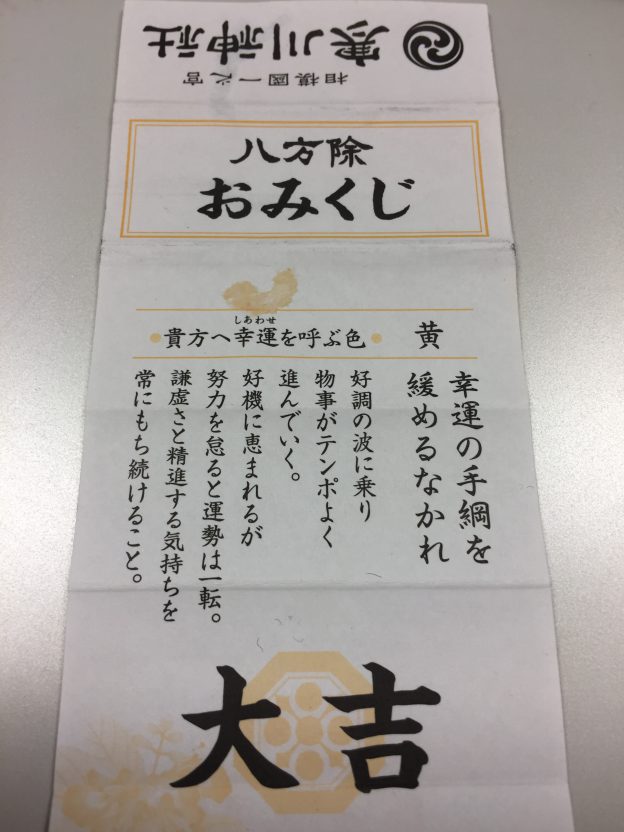 寒川神社
相模國一之宮
八方除
おみくじ
貴方へ幸運を呼ぶ色 黄
しあわせ
幸運の手綱を
緩めるなかれ
好調の波に乗り
物事がテンポよく
進んでいく。
好機に恵まれるが
努力を怠ると運勢は一転。
謙虚さと精進する気持ちを
常にもち続けること。
大吉